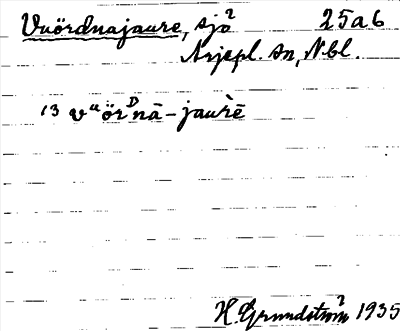 Vuördnajaure, sjö² 25a6
Arjepl. sn, Nbl.
13 vᵘörᴰnā-jaurḕ
H. Grundström² 1935